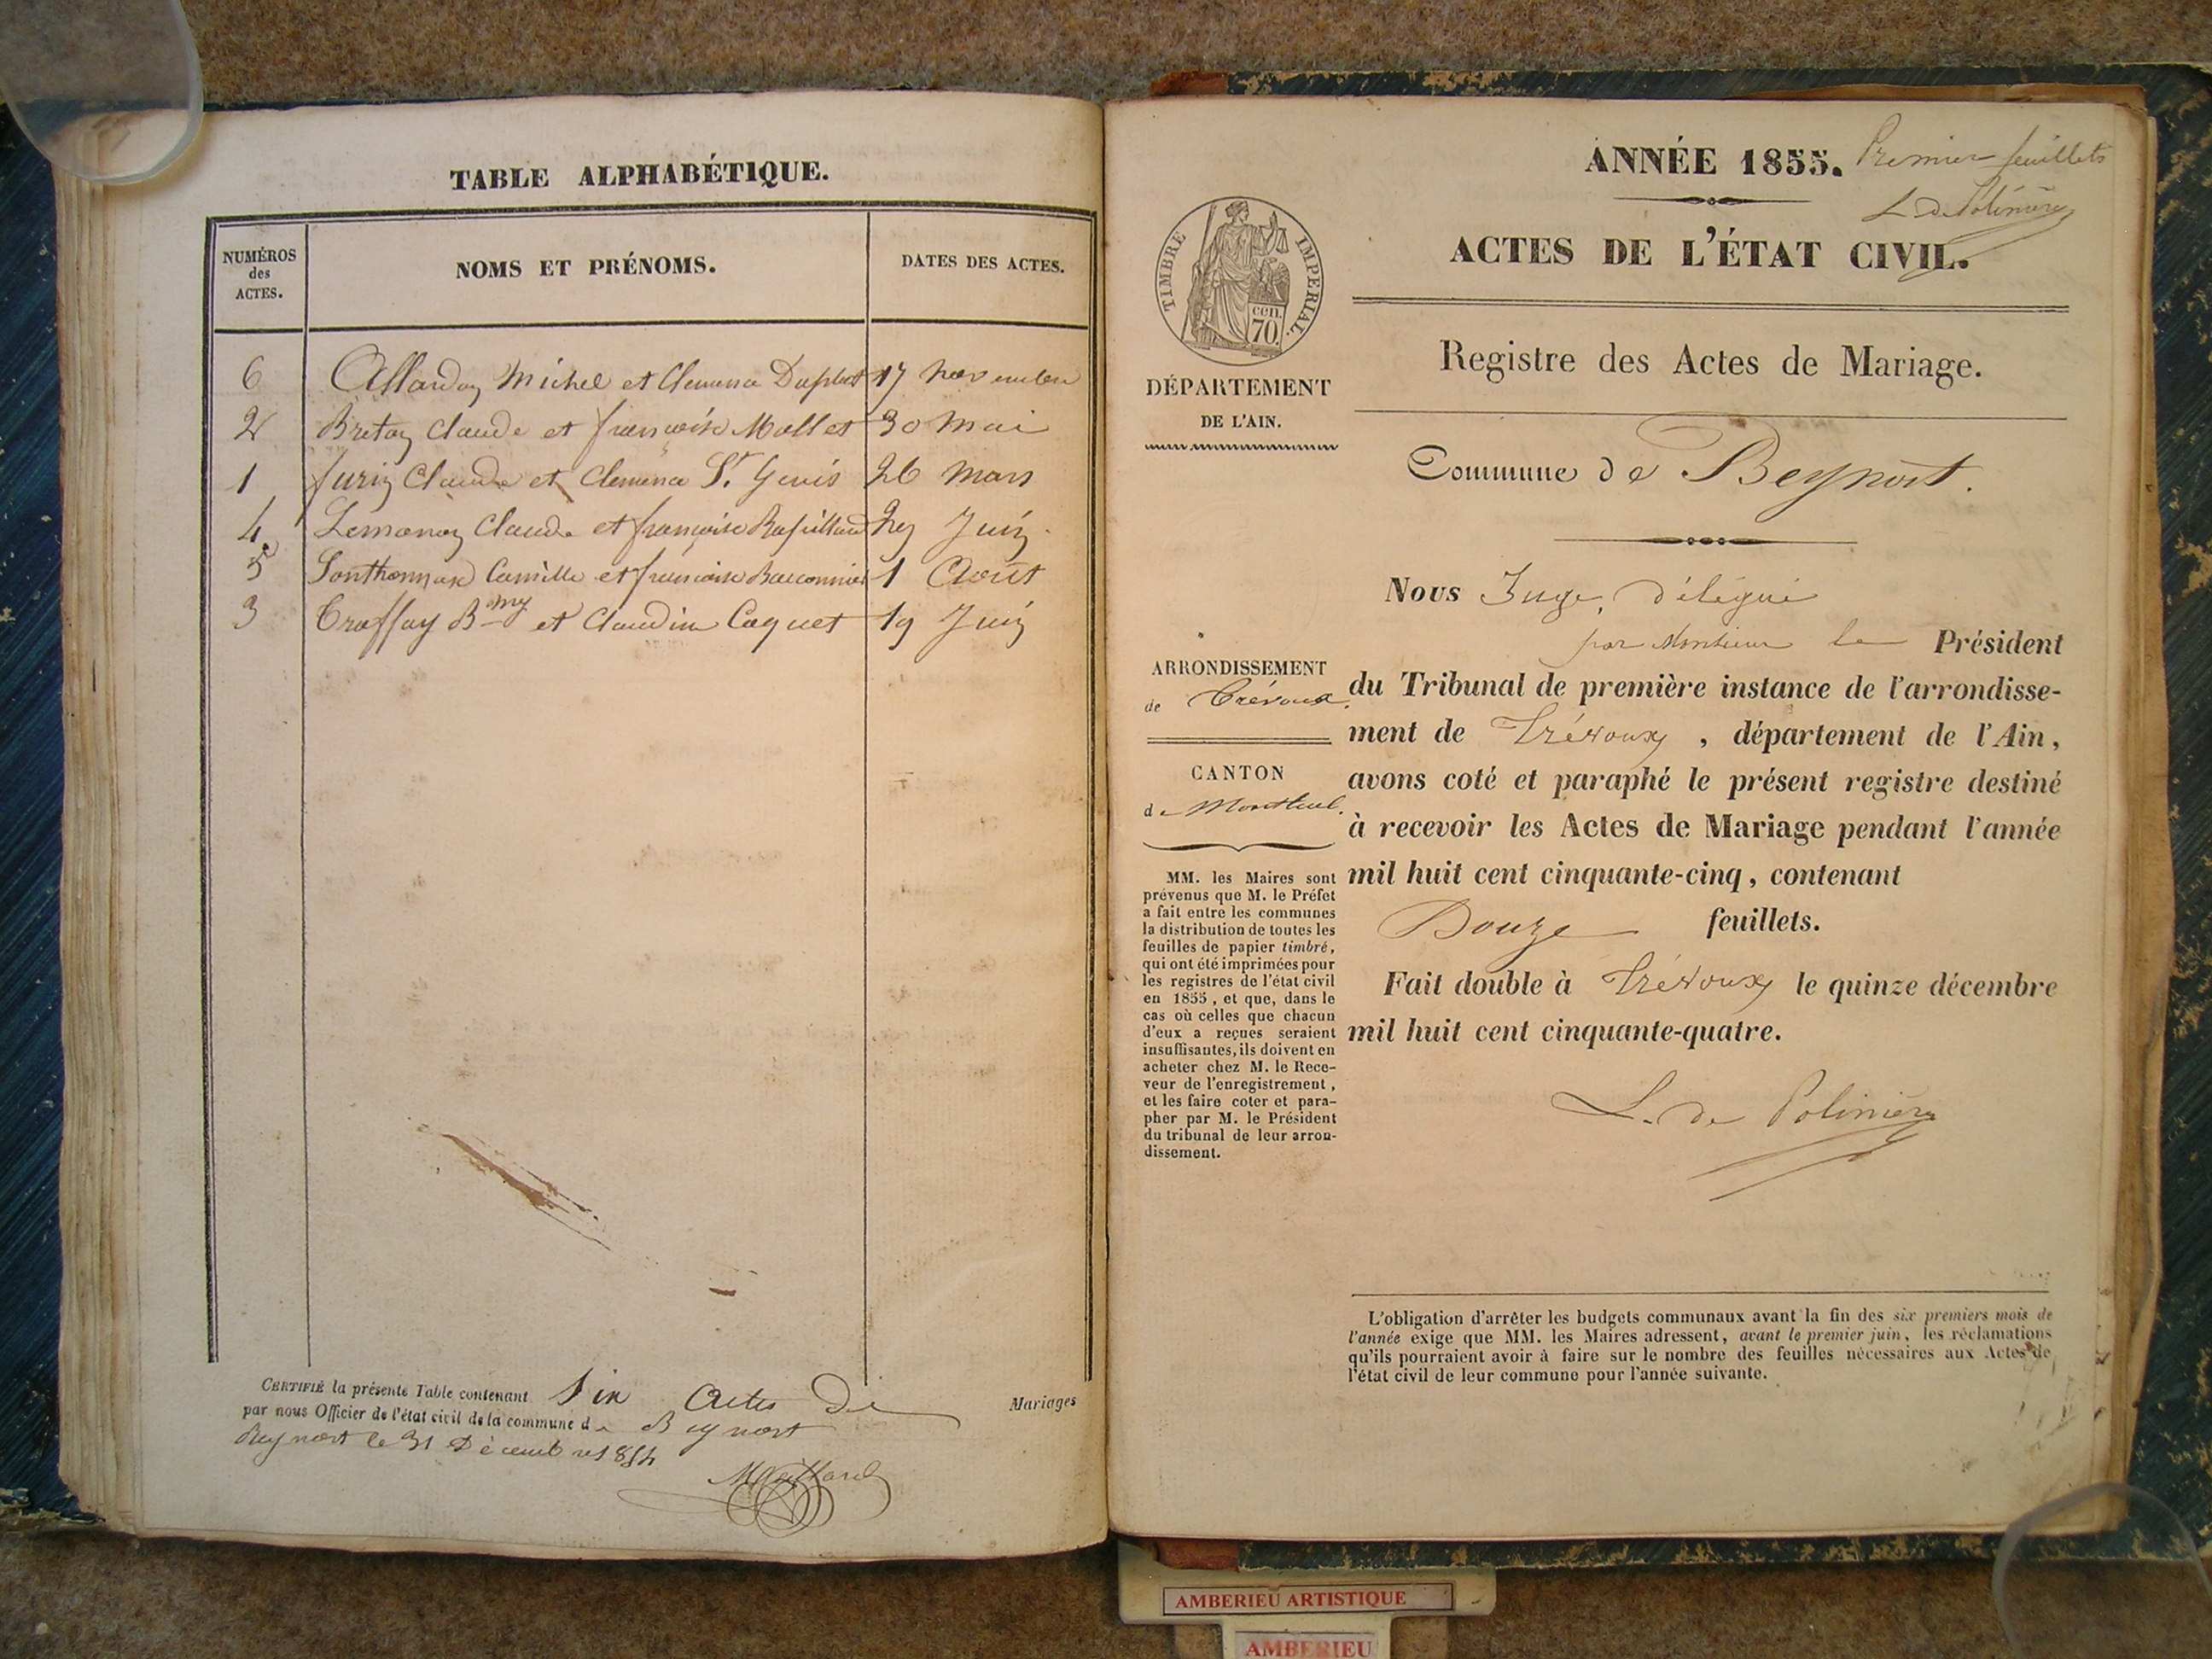 TABLE ALPHABÉTIQUE.
NUMÉROS
des
ACTES.
NOMS ET PRÉNOMS.
DATES DES ACTES.
6 Michel et Clemence 17 novembre
2 Breton Claude et françoise Mollet 30 Mai
1 furin Claude et Clemence St. Genis 26 Mars
4 Claude et françoise 29 Juin
5 Camille et françoise 1 Août
3 Bmy et Claudine Coquet 19 Juin
CERTIFIÉ la présente Table contenant Six Actes de Mariages
par nous Officier de l'état civil de la commune de Beynost
Beynost le 31 Décembre 1854
ANNÉE 1855.
Premier feuillets
L de Polinière
ACTES DE L'ÉTAT CIVIL.
TIMBRE IMPERIAL.
cen.
70.
DÉPARTEMENT
DE L'AIN.
Registre des Actes de Mariage.
Commune de Beynost.
ARRONDISSEMENT
de Trévoux.
CANTON
de Montluel.
MM. les Maires sont
prévenus que M. le Préfet
a fait entre les communes
la distribution de toutes les
feuilles de papier timbré,
qui ont été imprimées pour
les registres de l'état civil
en 1855, et que, dans le
cas où celles que chacun
d'eux a reçues seraient
insuffisantes, ils doivent en
acheter chez M. le Rece-
veur de l'enregistrement,
et les faire coter et para-
pher par M. le Président
du tribunal de leur arron-
dissement.
Nous Juge, délégué
par Monsieur le Président
du Tribunal de première instance de l'arrondisse-
ment de Trévoux, département de l'Ain,
avons coté et paraphé le présent registre destiné
à recevoir les Actes de Mariage pendant l'année
mil huit cent cinquante-cinq, contenant
Douze feuillets.
Fait double à Trévoux le quinze décembre
mil huit cent cinquante-quatre.
L. de Polinière
L'obligation d'arrêter les budgets communaux avant la fin des six premiers mois de
l'année exige que MM. les Maires adressent, avant le premier juin, les réclamations
qu'ils pourraient avoir à faire sur le nombre des feuilles nécessaires aux Actes de
l'état civil de leur commune pour l'année suivante.
AMBERIEU ARTISTIQUE
AMBERIEU